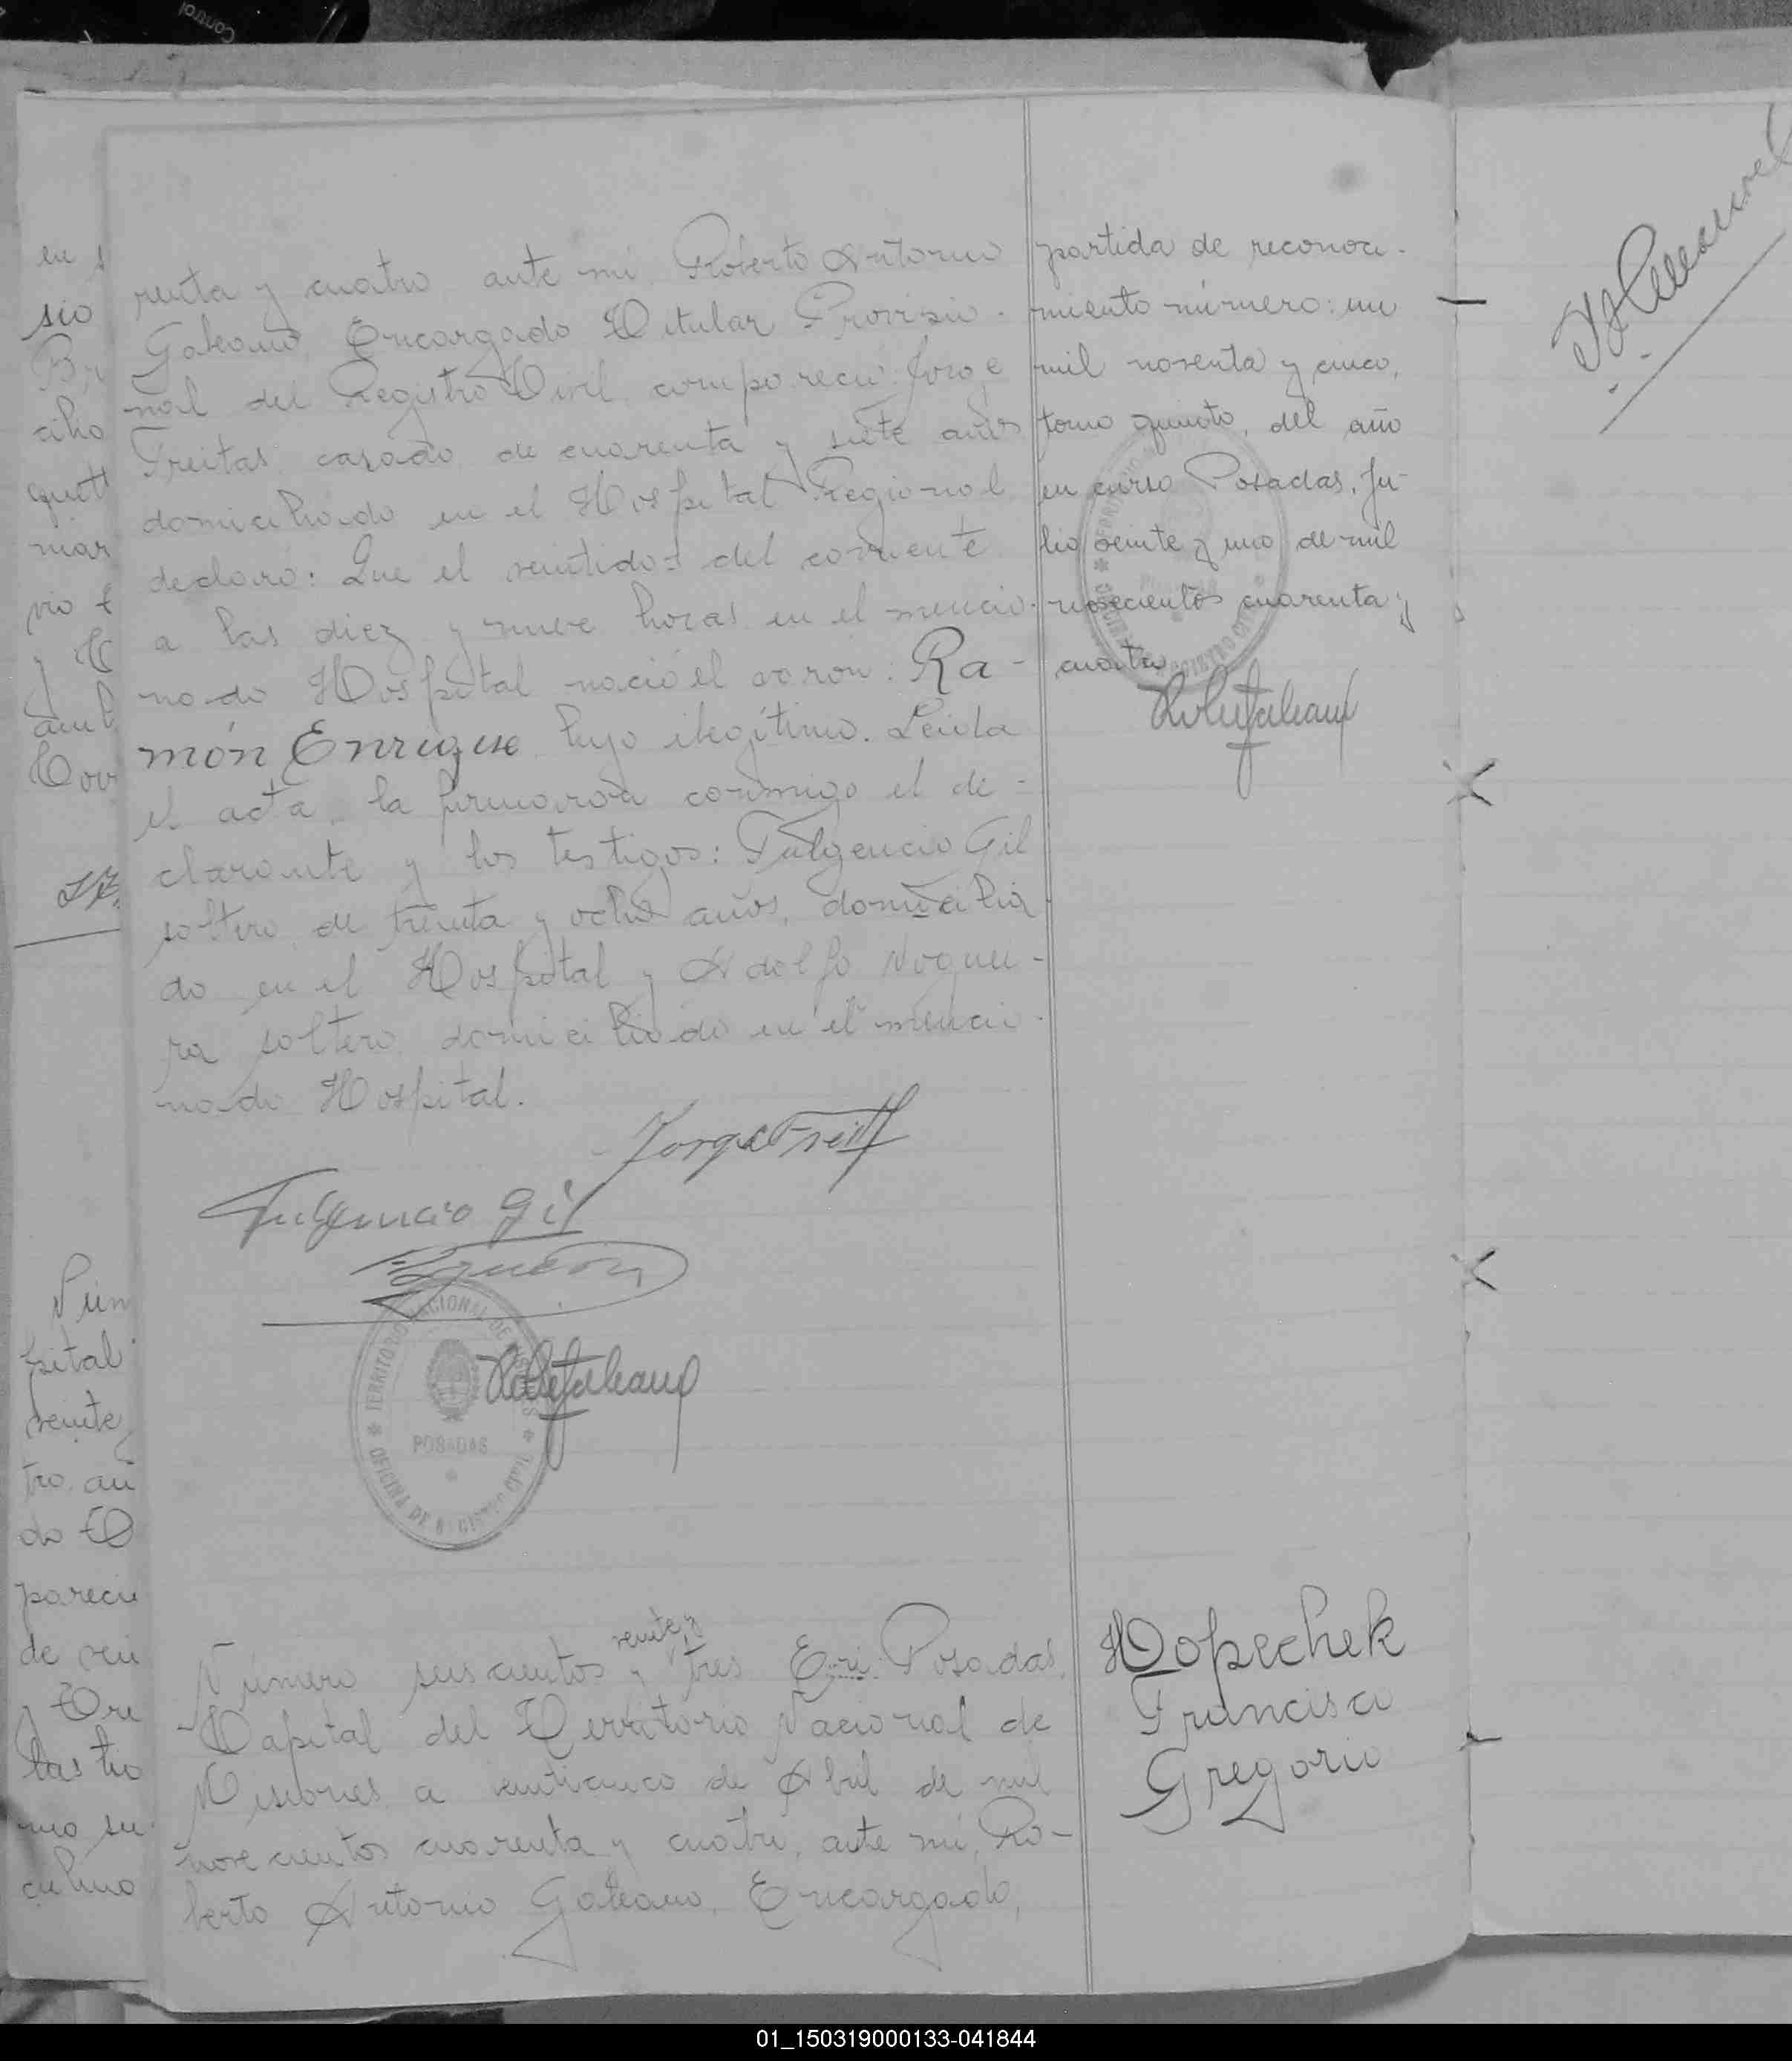 renta y cuatro ante mi Roberto Antonio
Galeano, Encargado Titular Proviso-
nal del Registro Civil, compareció Jorge
Freitas, casado, de cuarenta y siete años
domiciliado en el Hospital Regional
declaró: Que el veintidos del corriente
a las diez y nueve horas en el mencio-
nado Hospital nació el varon: Ra-
món Enrique hijo ilegítimo. Leida
el acta, la firmaron conmigo el de-
clarante y los testigos: Fulgencio Gil
soltero, de treinta y ocho años, domicilia
do en el Hospital y Adolfo Noguei-
ra soltero domiciliado en el mencio-
nado Hospital.
Jorge Freit
Fulgencio Gil
TERRITORIO NACIONAL DE MISIONES
POSADAS
OFICINA DE REGISTRO CIVIL
partida de reconoci-
miento número: un
mil noventa y cinco,
tomo quinto, del año
en curso Posadas, Ju-
lio veinte y uno de mil
novecientos cuarenta y
cuatro
Número seiscientos veinte y tres En Posadas,
Capital del Territorio Nacional de
Misiones a veinticinco de Abril de mil
novecientos cuarenta y cuatro, ante mí, Ro-
berto Antonio Galeano, Encargado,
Hopechek
Francisco
Gregorio
01_150319000133-041844